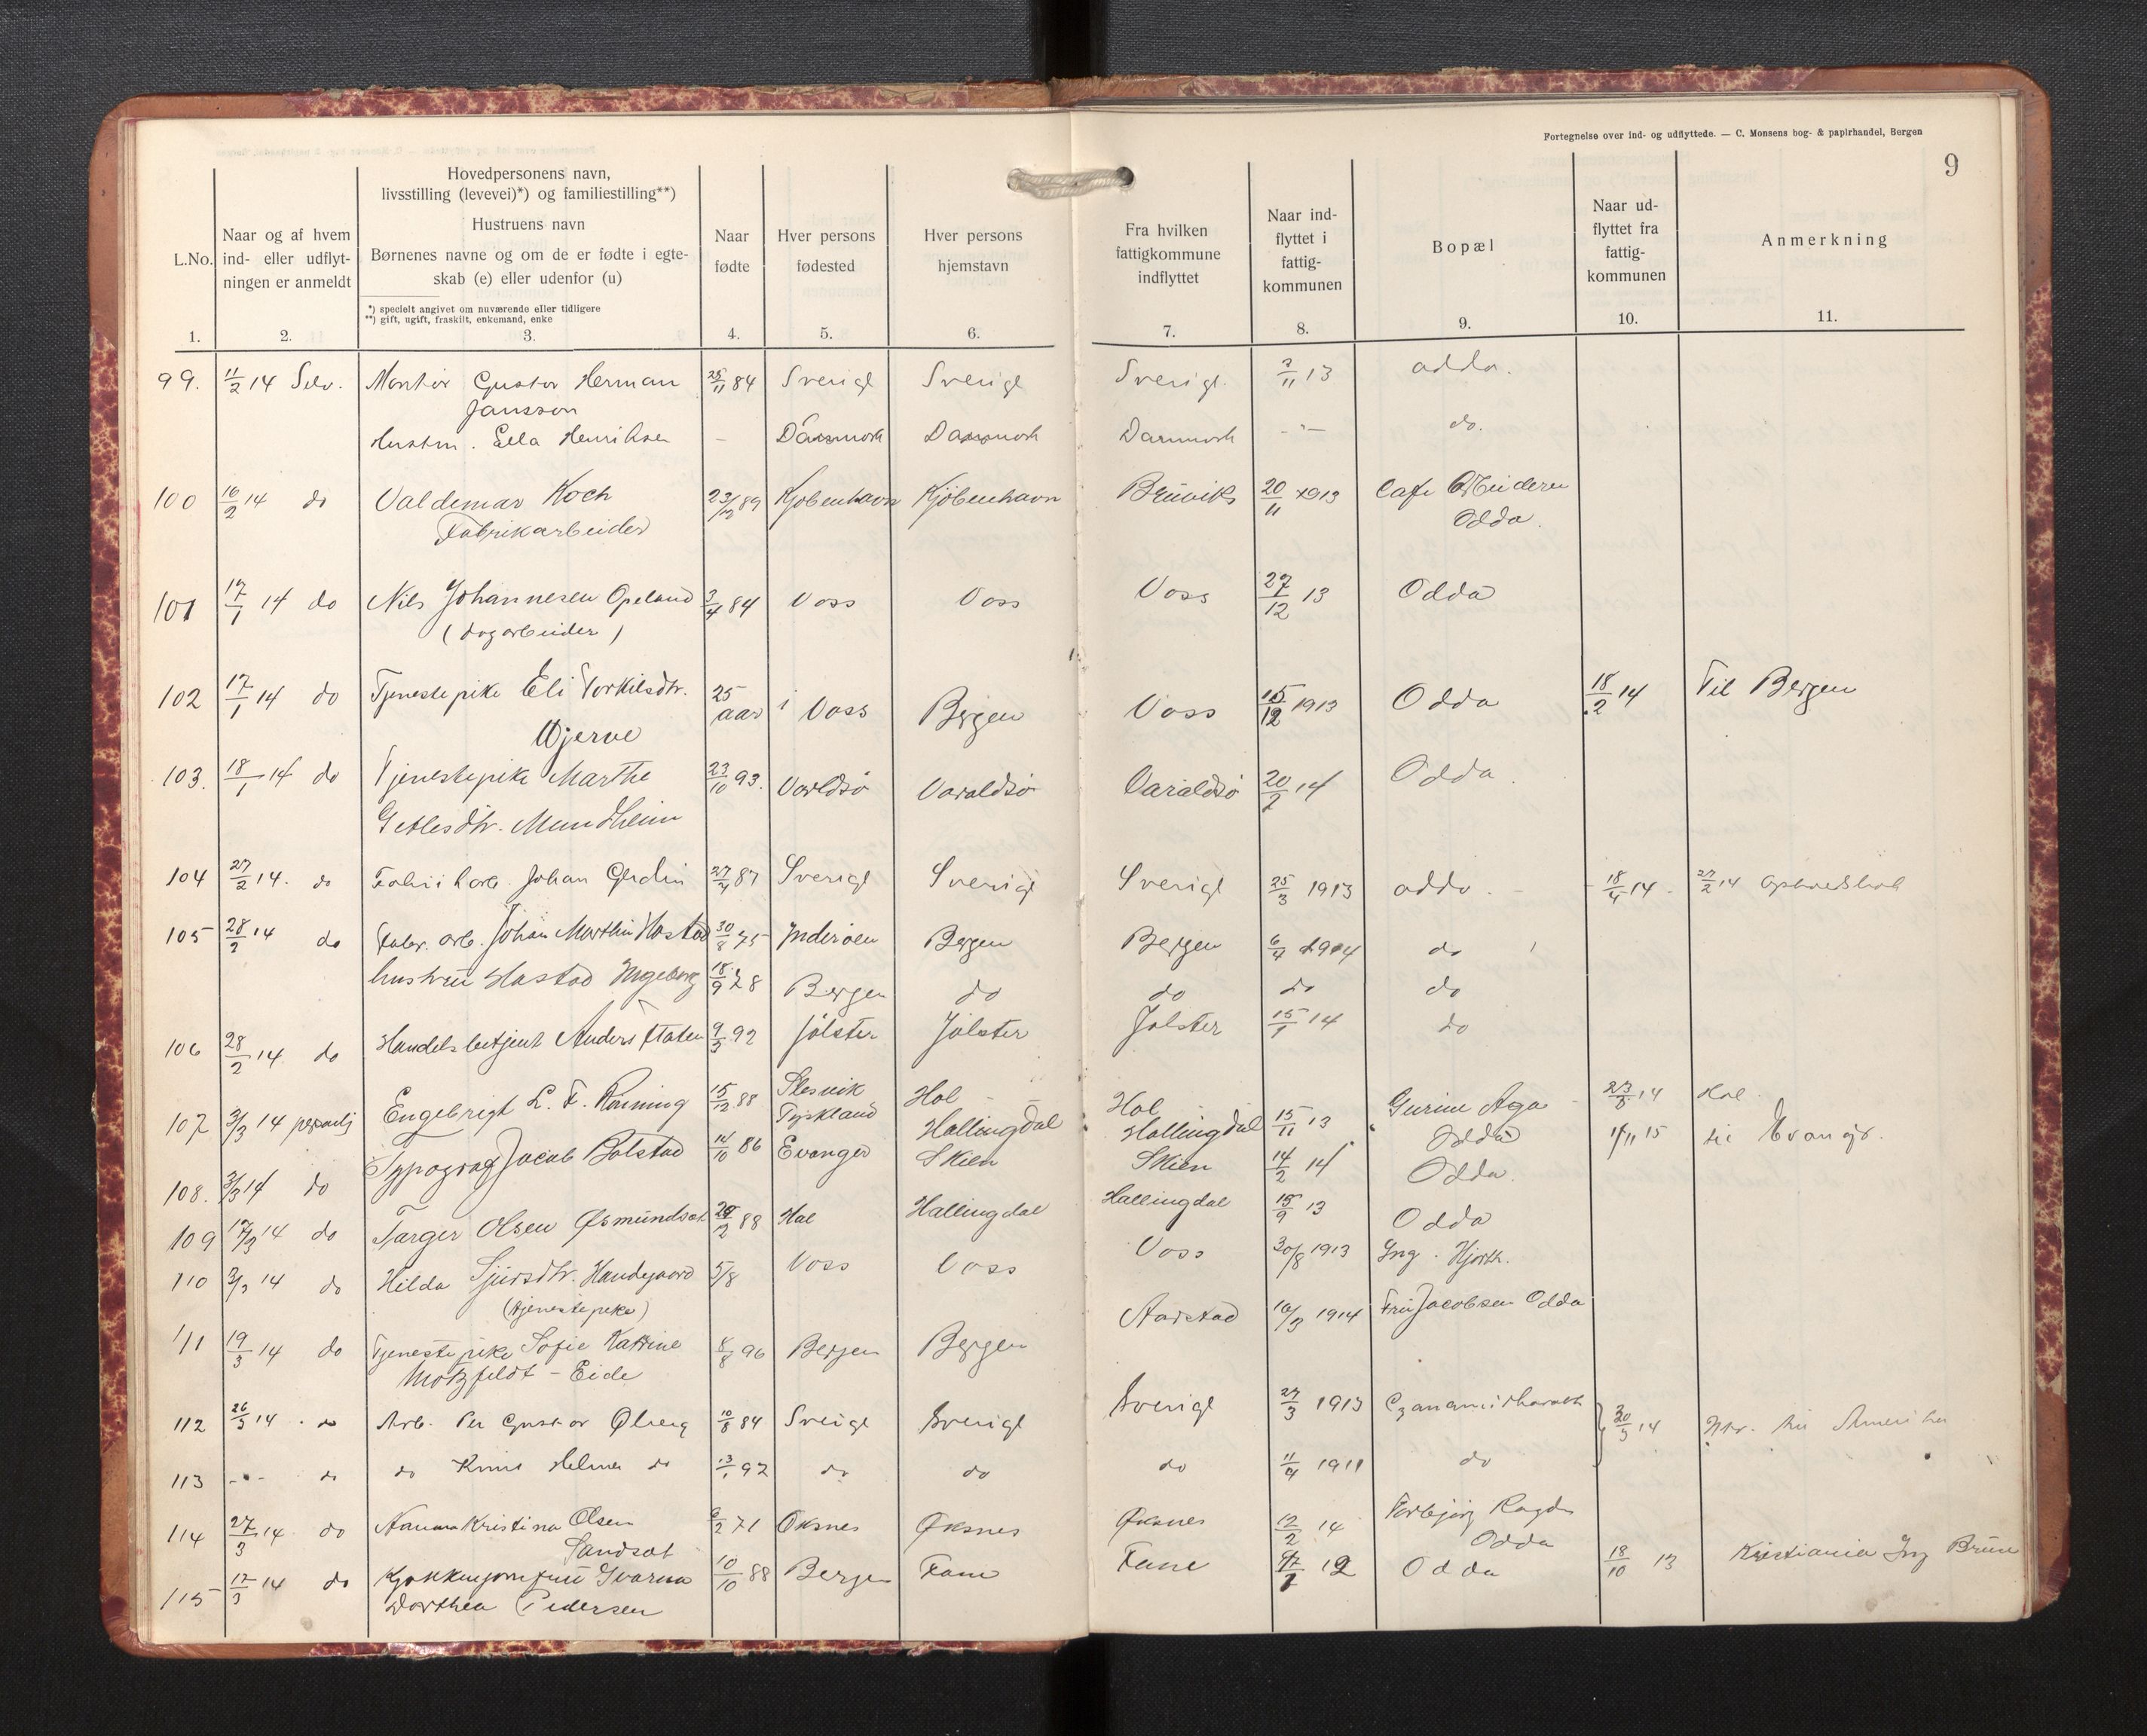 Fortegnelse over ind- og udflyttede. — C. Monsens bog- & papirhandel, Bergen
9
L.No.
1.
Naar og af hvem
ind- eller udflyt-
ningen er anmeldt
2.
Hovedpersonens navn,
livsstilling (levevei)*) og familiestilling**)
Hustruens navn
Børnenes navne og om de er fødte i egte-
skab (e) eller udenfor (u)
*) specielt angivet om nuværende eller tidligere
**) gift, ugift, fraskilt, enkemand, enke
3.
Naar
fødte
4.
Hver persons
fødested
5.
Hver persons
hjemstavn
6.
Fra hvilken
fattigkommune
indflyttet
7.
Naar ind-
flyttet i
fattig-
kommunen
8.
Bopæl
9.
Naar ud-
flyttet fra
fattig-
kommunen
10.
Anmerkning
11.
99. 11/2 14 Selv. Montør Gustav Herman 25/11 84 Sverige Sverige Sverige 7/11 13 Odda.
Jansson
Hustru. Ella Henriksen – Danmark Danmark Danmark -"- do.
100 16/2 14 do Valdemar Koch 23/12 89 Kjöbenhavn Kjöbenhavn Bruviks 20/11 1913 Cafe Arbeideren
Fabrikarbeider Odda.
101 17/1 14 do Nils Johannesen Opeland 3/4 84 Voss Voss Voss 27/12 13 Odda
(dagarbeider)
102 17/1 14 do Tjenestepike Eli Torkilsdtr. 25 aar i Voss Bergen Voss 15/12 1913 Odda 18/2 14 Til Bergen
Gjerve
103. 18/1 14 do Tjenestepike Marthe 23/10 93. Varldsö Varaldsö Varaldsö 20/2 14 Odda.
Getlesdtr. Mundheim
104 27/2 14. do Johan 27/4 87 Sverige Sverige Sverige 25/3 1913 Odda. 18/4 14. 27/2 14
105 28/2 14 do Fabr. arb. Johan Martin Hastad 30/8 75 Inderöen Bergen Bergen 6/4 1904 do
hustru Hastad Ingeborg 18/9 78 Bergen do do do do
106 28/2 14. do Handelsbetjent Anders Flaten 9/3 92 Jölster Jölster Jölster 15/1 14 do
107 3/3 14 personlig Engebrigt L. F. Rönning 15/12 88 Slesvik Tyskland Hol Hallingdal Hol Hallingdal 15/11 13 Gurine Aga Odda 23/8 14 Hol
108. 3/3 14 do Typograf Jacob Bolstad 14/10 86 Evanger Skien Skien 14/2 14 Odda. 1/11 15 til Evanger.
109 17/3 14 do Targer Olsen Øsmundset 88 Hol Hallingdal Hallingdal 15/9 13 Odda
110 3/3 14 do Hilda Sjursdtr. Handegaard 5/8 Voss Voss Voss 30/8 1913 Ing. Hjorth.
(tjenestepike)
111 19/3 14 do Tjenestepike Sofie Katrine 8/8 96 Bergen Bergen Aarstad 16/3 1914 Fru Jacobsen Odda
Motzfeldt – Eide
112 26/3 14 do Arb. Per Gustav Øberg 10/8 84 Sverige Sverige Sverige 27/3 1913 30/3 14 til Amerika
113 -"- do do Helmer do 13/1 92 do do do 11/4 1911 do
114 27/3 14. do Kristina Olsen 6/2 71 Øksnes Øksnes Øksnes 12/2 14 Torbjörg Ragde
Sandset Odda
115 17/3 14 do Kjøkkenjomfru 10/10 88 Bergen Fane Fane 12 Odda 18/10 13 Kristiania
Dorthea Pedersen